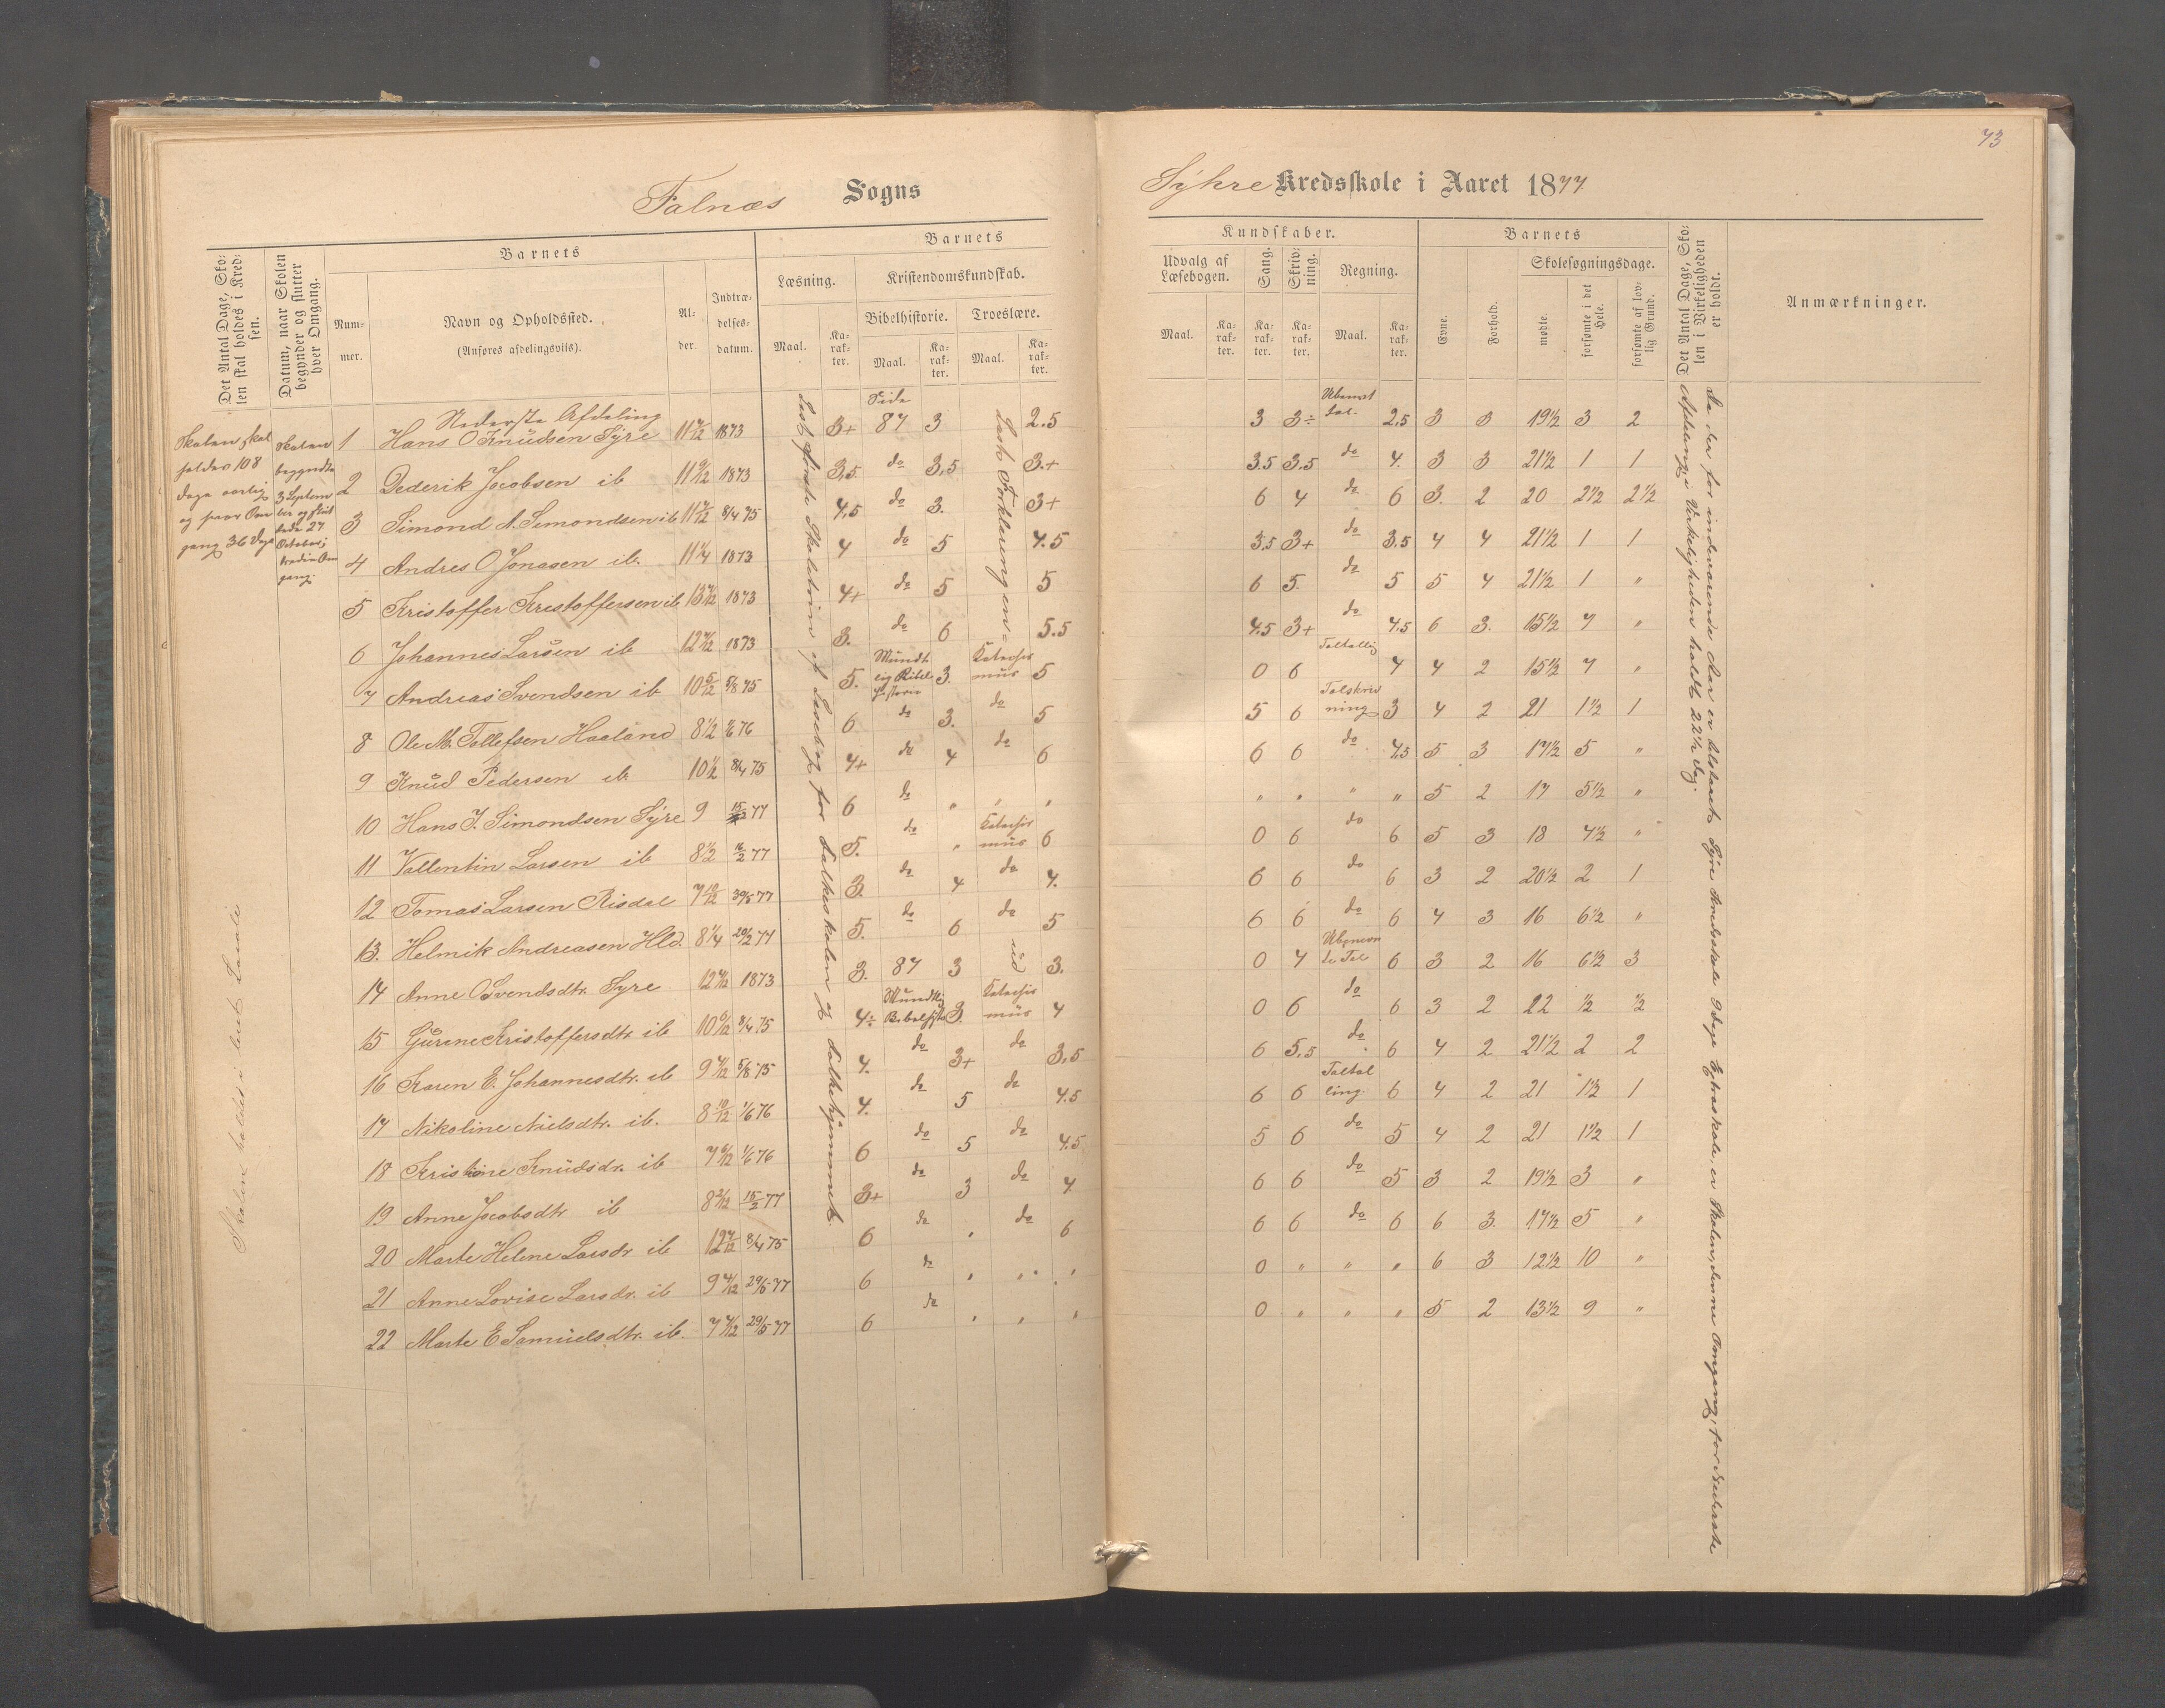 73
Falnæs Sogns
Syhre Kredsskole i Aaret 1877
Det Antal Dage, Sko-
len skal holdes i Kred-
sen.
Datum, naar Skolen
begynder og slutter
hver Omgang.
Barnets
Num-
mer.
Navn og Opholdssted.
(Anføres afdelingsviis).
Al-
der.
Indtræ-
delses-
datum.
Barnets
Læsning.
Maal.
Ka-
rak-
ter.
Kristendomskundskab.
Bibelhistorie.
Maal.
Ka-
rak-
ter.
Troeslære.
Maal.
Ka-
rak-
ter.
Kundskaber.
Udvalg af
Læsebogen.
Maal.
Ka-
rak-
ter.
Sang.
Ka-
rak-
ter.
Skriv-
ning.
Ka-
rak-
ter.
Regning.
Maal.
Ka-
rak-
ter.
Barnets
Evne.
Forhold.
Skolesøgningsdage.
mødte.
forsømte i det
Hele.
forsømte af lov-
lig Grund.
Det Antal Dage, Sko-
len i Virkeligheden
er holdt.
Anmærkninger.
Skolen skal
holdes 108
Dage aarlig
og hver Om
gang 36 Dage
Skolen
begyndte
3 Septem
ber og slut
tede 27
October;
tredie Om
gang.
Nederste Afdeling
Side
1 Hans O Knudsen Syre 11 7/12 1873 3+ 87 3 2.5 3 3÷ Ubenevnt Tal. 2,5 3 3 19½ 3 2
2 Dederik Jacobsen ib 11 9/12 1873 3,5 do 3,5 3+ 3.5 3.5 do 4. 3 3 21½ 1 1
3 Simond A. Simondsen ib 8/4 75 4,5 do 3. 3+ 6 4 do 6 3. 2 20 2½ 2½
4 Andres O Jonasen ib. 11 ¼ 1873 4 do 5 4.5 3.5 3+ do 3.5 4 4 21½ 1 1
5 Kristoffer Kristoffersen ib 1873 4+ do 5 5 6 5. do 5 5 4 21½ 1 "
6 Johannes Larsen ib 1873 3. do 6 5.5 4.5 3+ do 4,5 6 3. 15½ 7 "
7 Andreas Svendsen ib 10 5/12 5/8 75 5. Mundt lig Bibel historie 3. Katechis mus 5 0 6 Taltallig 4 4 2 15½ 7 "
8 Ole M. Tollefsen Haaland 8½ 1/6 76 6 do 3. do 5 5 6 Talskriv ning 3 4 2 21 1½ 1
9 Knud Pedersen ib 10½ 8/4 75 4+ do 4 do 6 6 6 do 4,5 5 3 17½ 5 "
10 Hans J. Simondsen Syre 9 77 6 do " " " " " " " 5 2 17 5½ "
11 Vallentin Larsen ib 8½ 16/2 77 5. do " Katechis mus 6 0 6 do 6 5 3 18 4½ "
12 Tomas Larsen Risdal 7 10/12 77 3. do 4 do 4. 6 6 do 6 3 2 20½ 2 1
13. Helmik Andreasen Hld. 8¼ 20/2 77 5. do 6 do 5 6 6 do 6 4 3 16 6½ "
14 Anne O Svendsdtr. Syre 1873 3. 87 3 ud 3. 0 4 Ubenevn te Tal 6 3 2 16 6½ 3
15 Gurene Kristoffersdtr. ib 8/4 75 4÷ Mundtlig Bibelhistorie 3. Katechis mus 4 0 6 do 6 3 2 22 ½ ½
16 Karen E. Johannesdtr. ib 5/8 75 4. do 3+ do 3,5 6 5,5 do 6 4 2 21½ 2 2
17 Nikoline Nielsdtr. ib. 8 10/12 1/6 76 4. do 5 do 4.5 6 6 Taltal ling 6 4 2 21 1½ 1
18 Kristine Knudsdr. ib 1/6 76 6 do 5 do 4.5 5 6 do 5 4 2 21 1½ 1
19 Anne Jacobsdtr ib 15/2 77 3+ do 3 do 4. 6 6 do 5 3 2 19½ 3 "
20 Marte Helene Larsdr ib 12 7/12 8/4 75 6 do " do 6 6 6 do 6 6 3. 17½ 5 "
21 Anne Lovise Larsdr. ib 9 4/12 29/5 77 6 do " " " 0 " " " 6 3 12½ 10 "
22 Marte E Samuelsdtr. ib. 29/5 77 6 do " " " 0 " " " 5 2 13½ 9 "
Læst første Skoletrin af Læsebog for Folkeskolen og Folkehjemmet.
Læst Forklaringen
Skolen holdes i leiet Locale
Da der for indeværende Aar er tilstaaet Syre Kredsskole Dage Extraskole, er Skolen, denne Omgang, for Nederste
Afdeling i Virkeligheden holdt 22½ Dag.